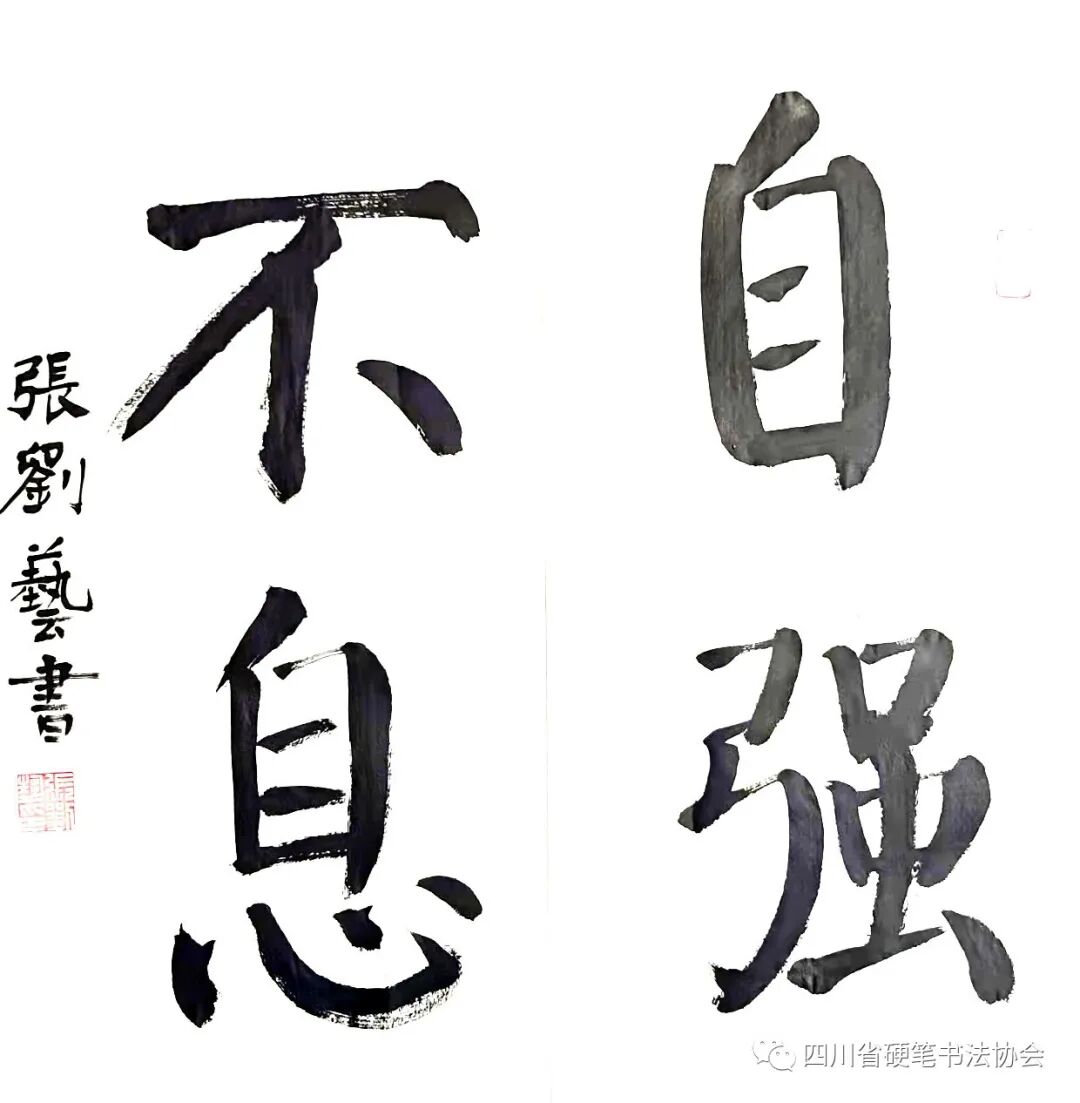 自强
不息
張劉藝書
四川省硬笔书法协会